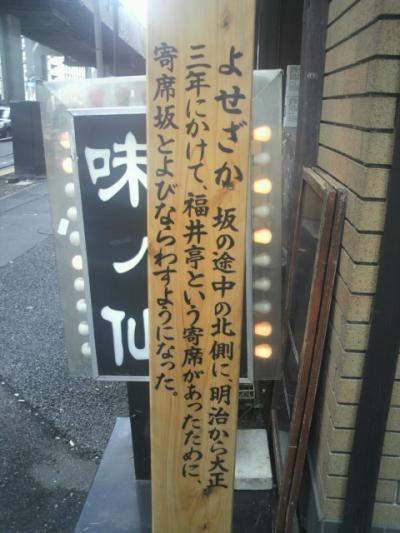 よせざか 坂の途中の北側に、明治から大正
三年にかけて、福井亭という寄席があったために、
寄席坂とよびならわすようになった。
味ノ仙